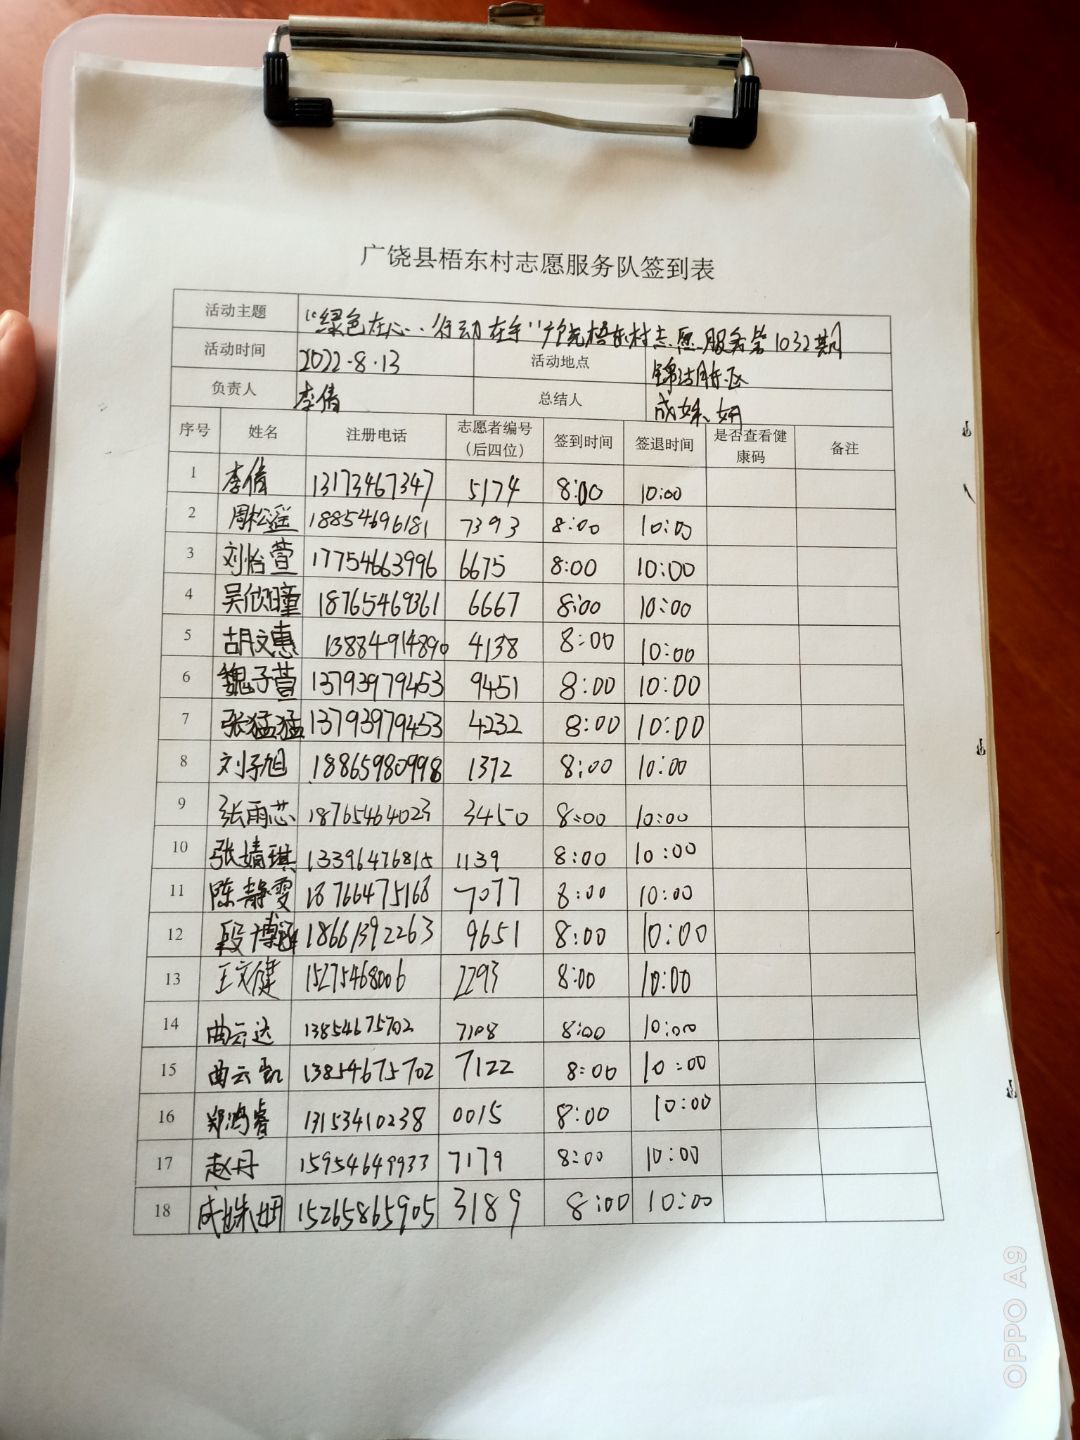 广饶县梧东村志愿服务队签到表
活动主题 “绿色在心..行动在手”广饶梧东村志愿服务第1032期
活动时间 2022-8.13 活动地点
负责人 李倩 总结人 成姝妍
序号 姓名 注册电话 志愿者编号（后四位） 签到时间 签退时间 是否查看健康码 备注
1 李倩 13173467347 5174 8:00 10:00
2 周松遥 18854696181 7393 8:00 10:00
3 刘怡萱 17754663996 6675 8:00 10:00
4 吴欣瞳 18765469361 6667 8:00 10:00
5 胡文惠 13884914890 4138 8:00 10:00
6 魏子萱 13793979453 9451 8:00 10:00
7 张猛猛 13793979453 4232 8:00 10:00
8 刘子旭 18865980998 1372 8:00 10:00
9 张雨芯 18765464023 3450 8:00 10:00
10 张婧琪 13396476815 1139 8:00 10:00
11 陈静雯 18766475168 7077 8:00 10:00
12 段博涵 18661392263 9651 8:00 10:00
13 王文健 15275468006 2293 8:00 10:00
14 曲云达 13854675702 7108 8:00 10:00
15 曲云凯 13854675702 7122 8:00 10:00
16 郑鸿睿 13153410238 0015 8:00 10:00
17 赵丹 15954649933 7179 8:00 10:00
18 成姝妍 15265865905 3189 8:00 10:00
OPPO A9